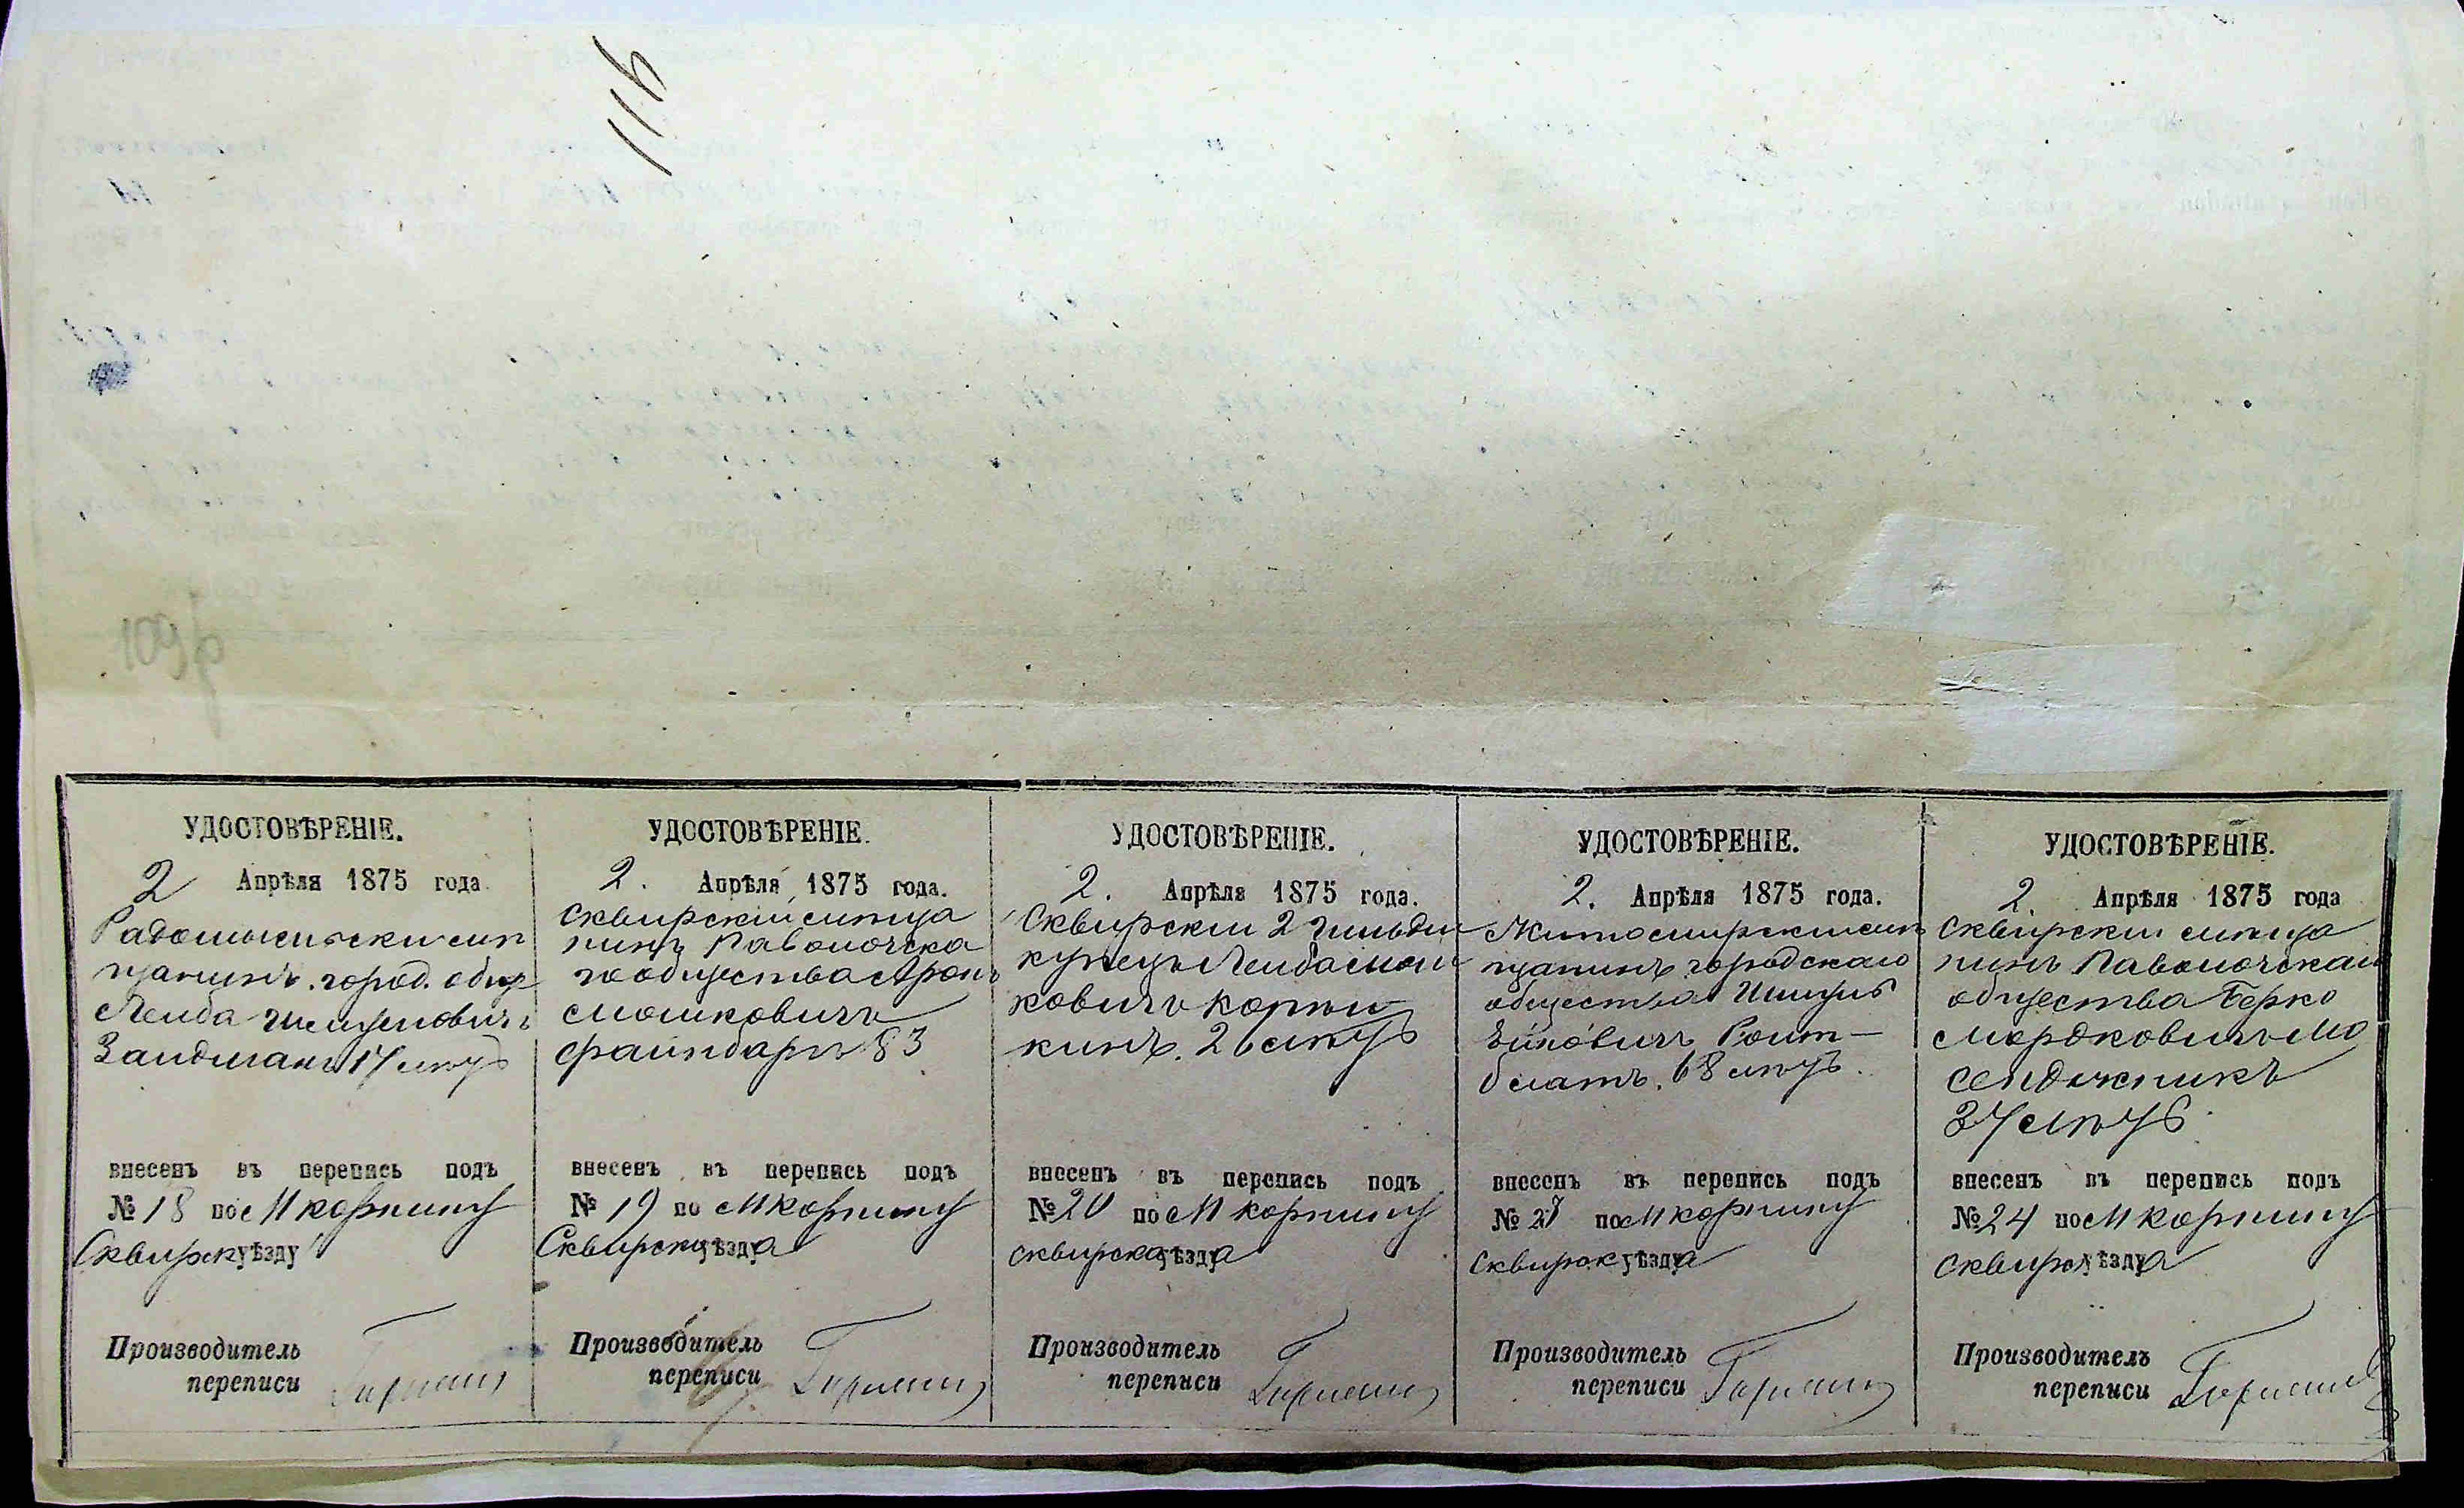 116
109
УДОСТОВѢРЕНІЕ.
2 Апрѣля 1875 года
щанинъ. город. общ
Лейба
Зайдманъ 17 лѣтъ
внесенъ въ перепись подъ
№ 18 по М Корнину
Сквирск уѣзду
Производитель
переписи
УДОСТОВѢРЕНІЕ.
2. Апрѣля 1875 года.
Сквирскій мѣща
нинъ Паволочска
го общества Аронъ
Мошковичъ
Файнбаръ 83
внесенъ въ перепись подъ
№ 19 по М Корнину
Сквирска уѣзда
Производитель
переписи
УДОСТОВѢРЕНІЕ.
2. Апрѣля 1875 года.
Сквирскій 2 гильдіи
купецъ Лейба Мош
ковичъ
кинъ. 26 лѣтъ
внесенъ въ перепись подъ
№ 20 по М Корнину
Сквирска уѣзда
Производитель
переписи
УДОСТОВѢРЕНІЕ.
2. Апрѣля 1875 года.
Житомирскій мѣ
щанинъ городскаго
общества
Ройт-
блатъ. 68 лѣтъ.
внесенъ въ перепись подъ
№ по М Корнину
Сквирск уѣзда
Производитель
переписи
УДОСТОВѢРЕНІЕ.
2. Апрѣля 1875 года
Сквирскій мѣща
нинъ Паволочскаго
общества Берко
Мордковичъ Мо
сенджникъ
37 лѣтъ.
внесенъ въ перепись подъ
№ 24 по М Корнину
Сквирск уѣзда
Производитель
переписи